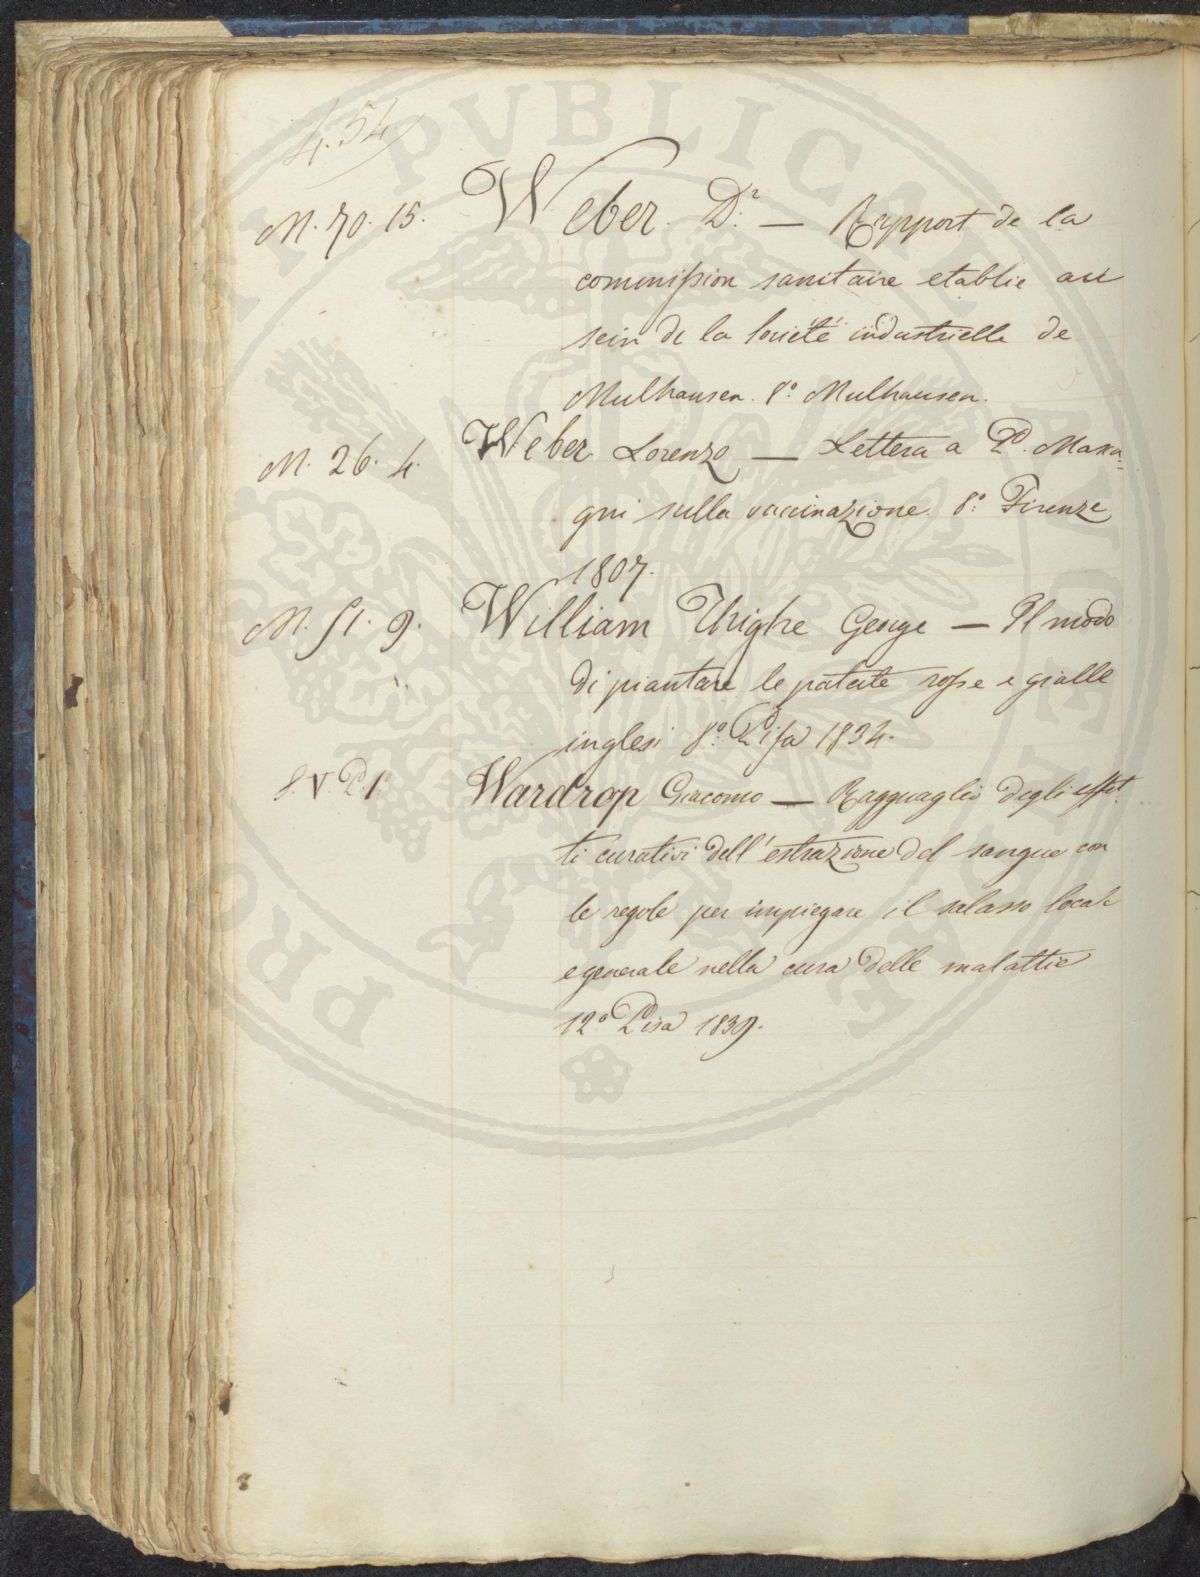 454
M. 70. 15. Weber. D.r — Rapport de la
commission sanitaire etablie au
sein de la Société industrielle de
Mulhausen. 8.o Mulhausen.
M. 26. 4. Weber Lorenzo — Lettera a P.
gni sulla vaccinazione. 8.o Firenze
1807.
M. 51. 9. William Thighe George — Il modo
di piantare le patate rosse e gialle
inglesi 8.o Pisa 1834.
S. V. P. 1. Wardrop Giacomo — Ragguaglio degli effet
ti curativi dell'estrazione del sangue con
le regole per impiegare il salasso locale
e generale nella cura delle malattie
12.o Pisa 1839.